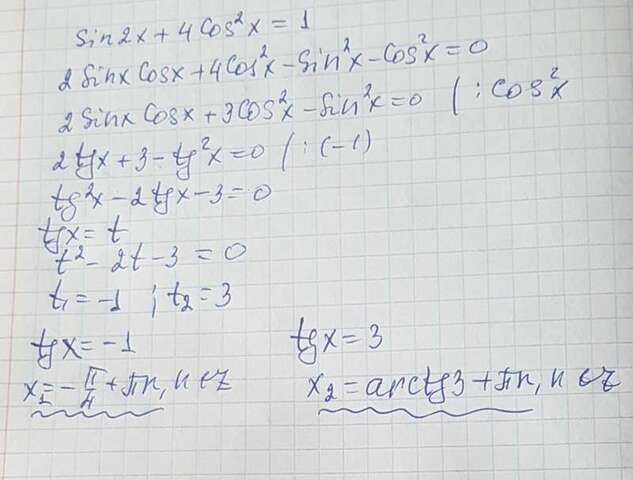 sin2x + 4cos²x = 1
2sinx cosx + 4cos²x - sin²x - cos²x = 0
2sinx cosx + 3cos²x - sin²x = 0 / : cos²x
2tgx + 3 - tg²x = 0 / : (-1)
tg²x - 2tgx - 3 = 0
tgx = t
t² - 2t - 3 = 0
t₁ = -1 ; t₂ = 3
tgx = -1 tgx = 3
x₁ = -π/4 + πn, n ∈ z x₂ = arctg3 + πn, n ∈ z